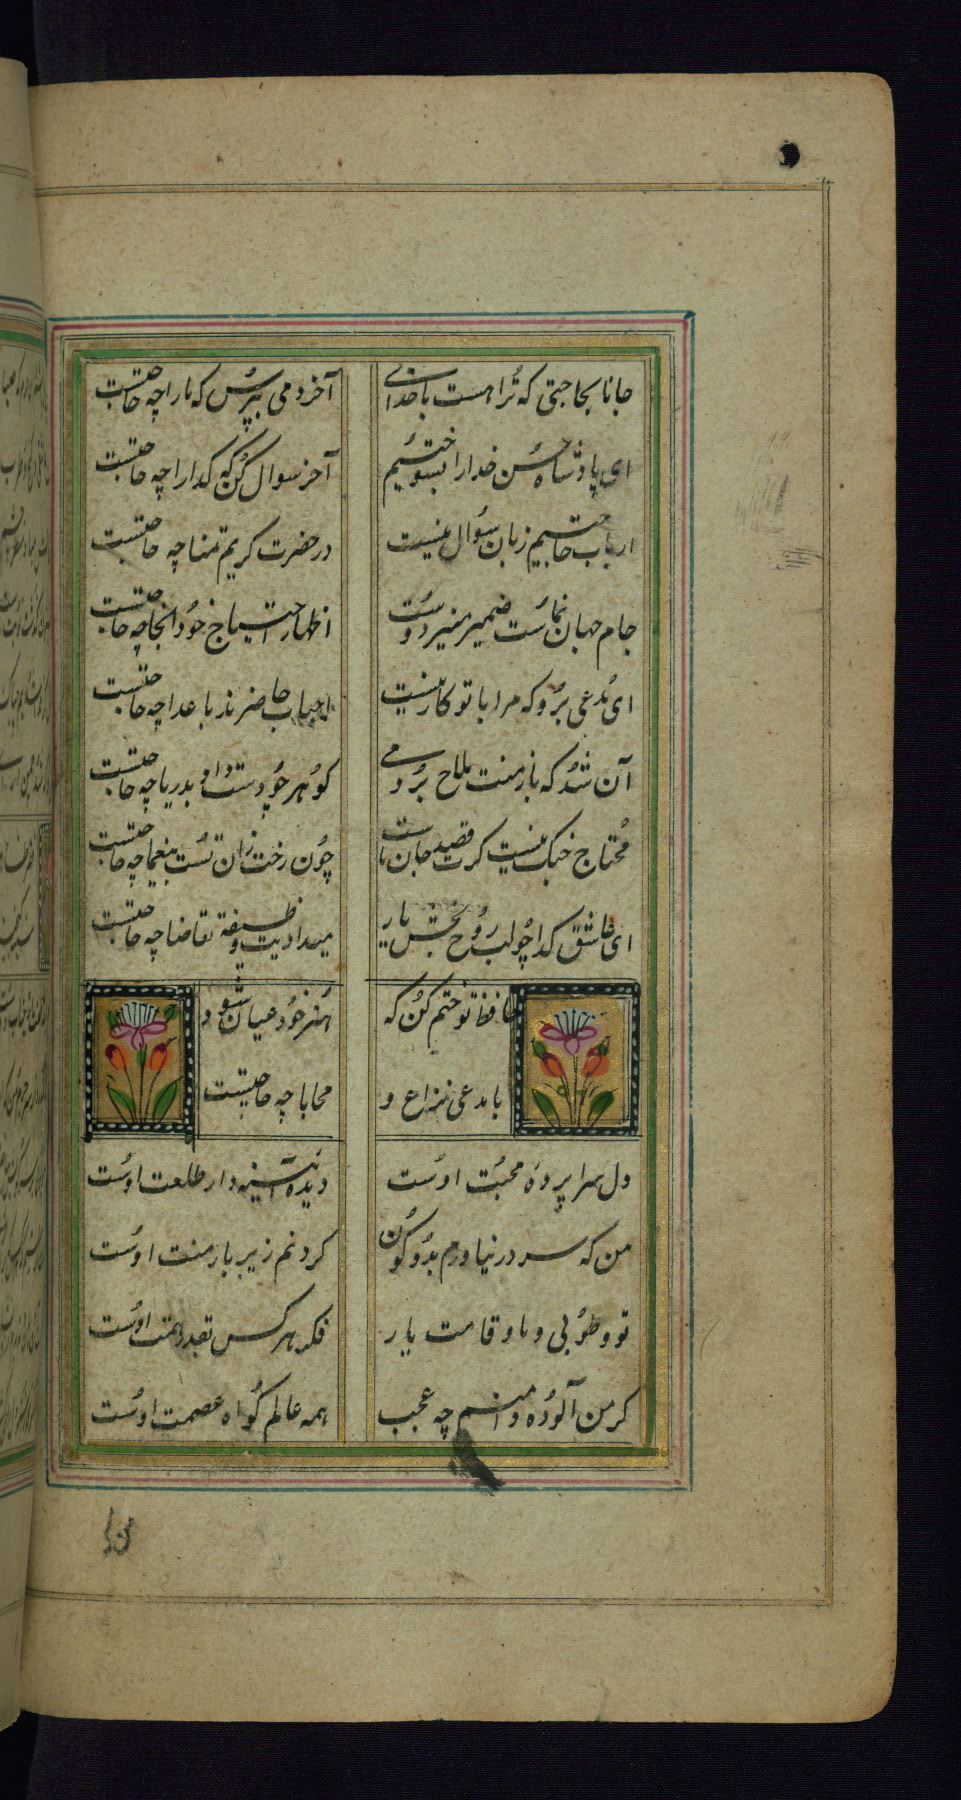 جانا بحاجتی که ترا هست با خدای
آخر دمی بپرس که ما را چه حاجتست
ای پادشاه حسن خدا را بسوختیم
آخر سوال کن که کدا را چه حاجتست
ارباب حاجتیم زبان سؤال نیست
در حضرت کریم تمنا چه حاجتست
جام جهان نماست ضمیر منیر دوست
اظهار احتیاج خود انجا چه حاجتست
ای مدعی برو که مرا با تو کار نیست
احباب حاضرند با عدا چه حاجتست
آن شد که بار منت ملاح بردمی
کوهر چو دست داد بدریا چه حاجتست
محتاج جنک نیست کرت قصد جان ماست
چون رخت زان تست بیغما چه حاجتست
ای عاشق کدا چو لب روح بخش یار
میداندت وظیفه تقاضا چه حاجتست
حافظ تو ختم کن که
هنر خود عیان شود
با مدعی نزاع و
محابا چه حاجتست
دل سراپرده محبت اوست
دیده آئینه دار طلعت اوست
من که سر در نیاورم بدو کون
کردنم زیر بار منت اوست
تو و طوبی و ما و قامت یار
فکر هر کس بقدر همت اوست
کر من آلوده دامنم چه عجب
همه عالم کواه عصمت اوست